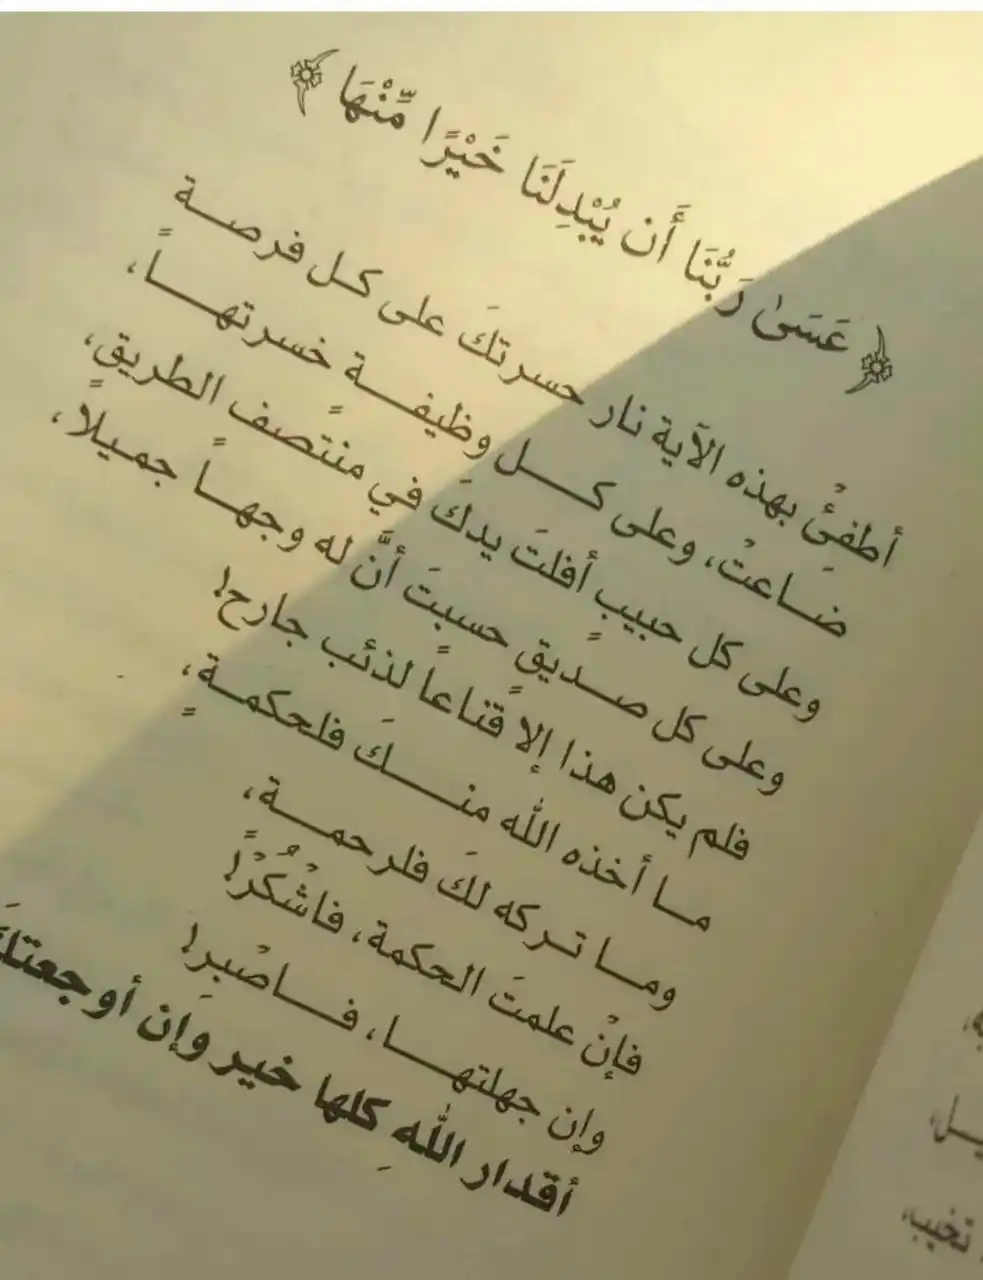 ﴿ عَسَىٰ رَبُّنَا أَن يُبْدِلَنَا خَيْرًا مِّنْهَا ﴾
أطفِئْ بهذه الآية نار حسرتكَ على كل فرصةٍ
ضاعتْ، وعلى كل وظيفةٍ خسرتهاً،
وعلى كل حبيبٍ أفلتَ يدكَ في منتصف الطريقِ،
وعلى كل صديقٍ حسبتَ أنَّ له وجهاً جميلاً،
فلم يكن هذا إلا قناعاً لذئب جارح!
ما أخذه الله منكَ فلحكمةٍ،
وما تركه لكَ فلرحمةٍ،
فإنْ علمتَ الحكمة، فاشْكُرْ!
وإن جهلتها، فاصْبر!
أقدار اللهِ كلها خير وَإن أوجعتكَ
يل
تخيب